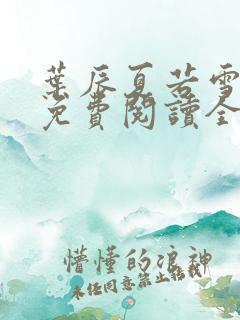 葉辰夏若雪
免費閱讀全
懵懂的浪神
未经同意禁止转载